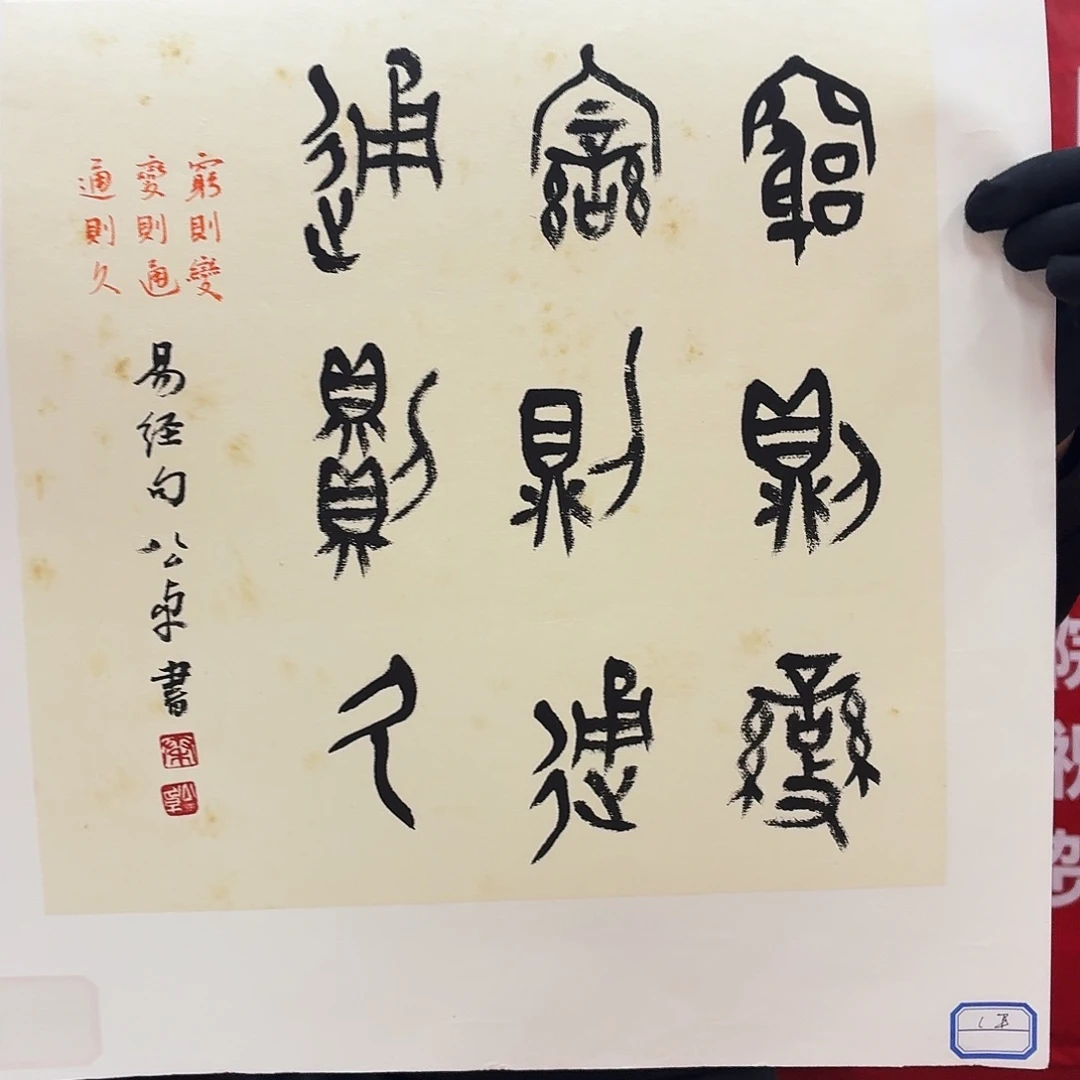 窮則變
變則通
通則久
窮則變
變則通
通則久
易经句公卓書
院祝贺